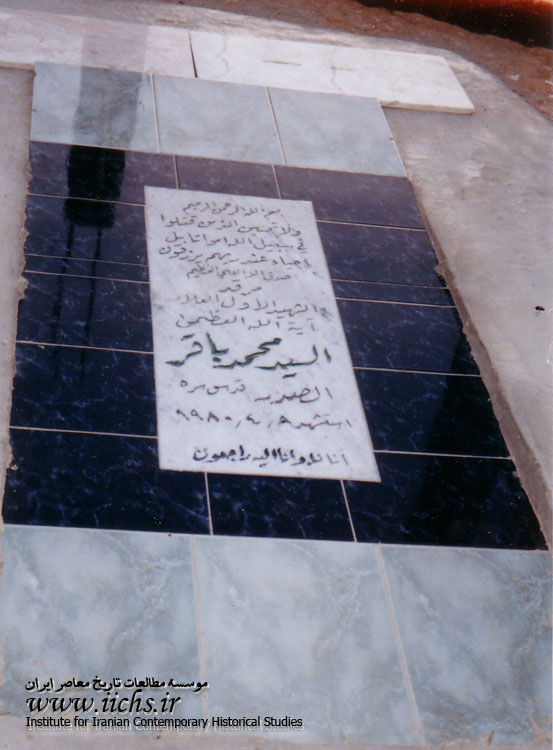 بسم الله الرحمن الرحيم
ولا تحسبن الذين قتلوا
في سبيل الله امواتا بل
احياء عند ربهم يرزقون
صدق الله العلي العظيم
مرقد
الشهيد الاول العلامة
آية الله العظمى
السيد محمد باقر
الصدر قدس سره
استشهد ٩ / ٤ / ١٩٨٠
انا لله وانا اليه راجعون
موسسه مطالعات تاریخ معاصر ایران
www.iichs.ir
Institute for Iranian Contemporary Historical Studies